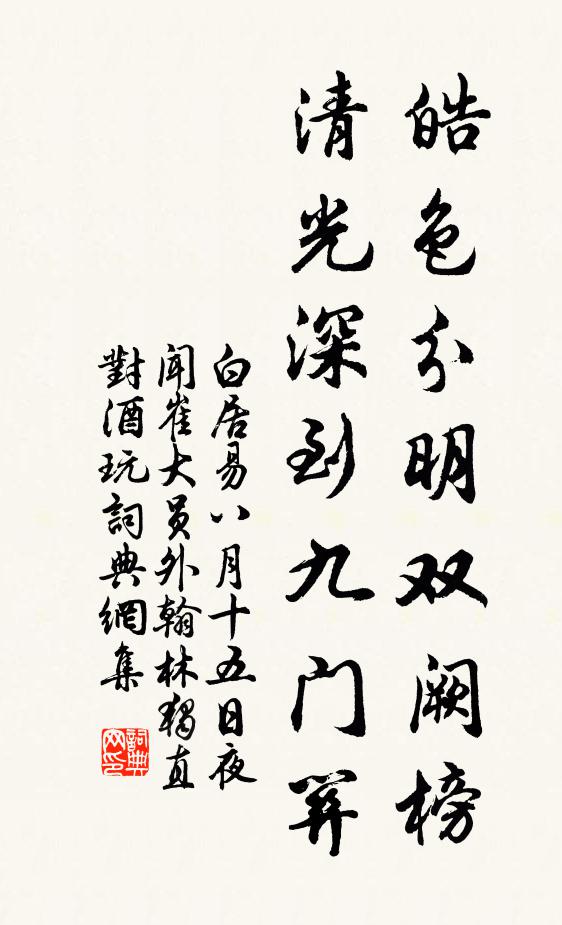 皓色分明双阙榜
清光深到九门關
白居易八月十五日夜
闻崔大员外翰林獨直
對酒玩詞典網集
詞典
网印